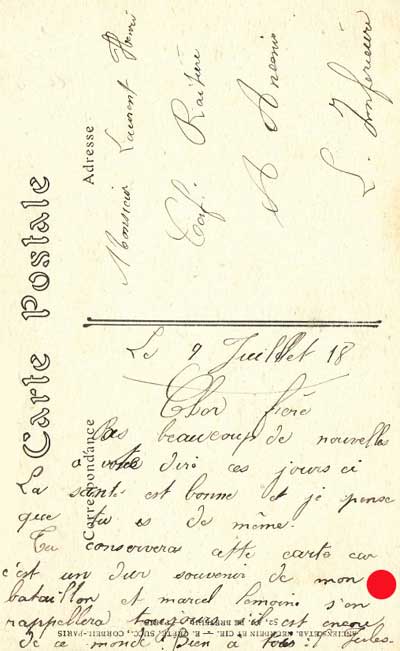 Carte Postale
Adresse
Monsieur Laurent Henri
Caf. Raitière
A Ancenis
L. Inferieure
Correspondance
Le 9 Juillet 18
Cher frère
Pas beaucoup de nouvelles
a votre dire ces jours ci
La santé est bonne et je pense
que tu es de même.
Tu conservera cette carte car
c'est un dur souvenir de mon
bataillon et marcel Lemoine s'en
rappellera toujours s'il est encore
de ce monde. Bien a toi! Jules-
CORBEIL-PARIS